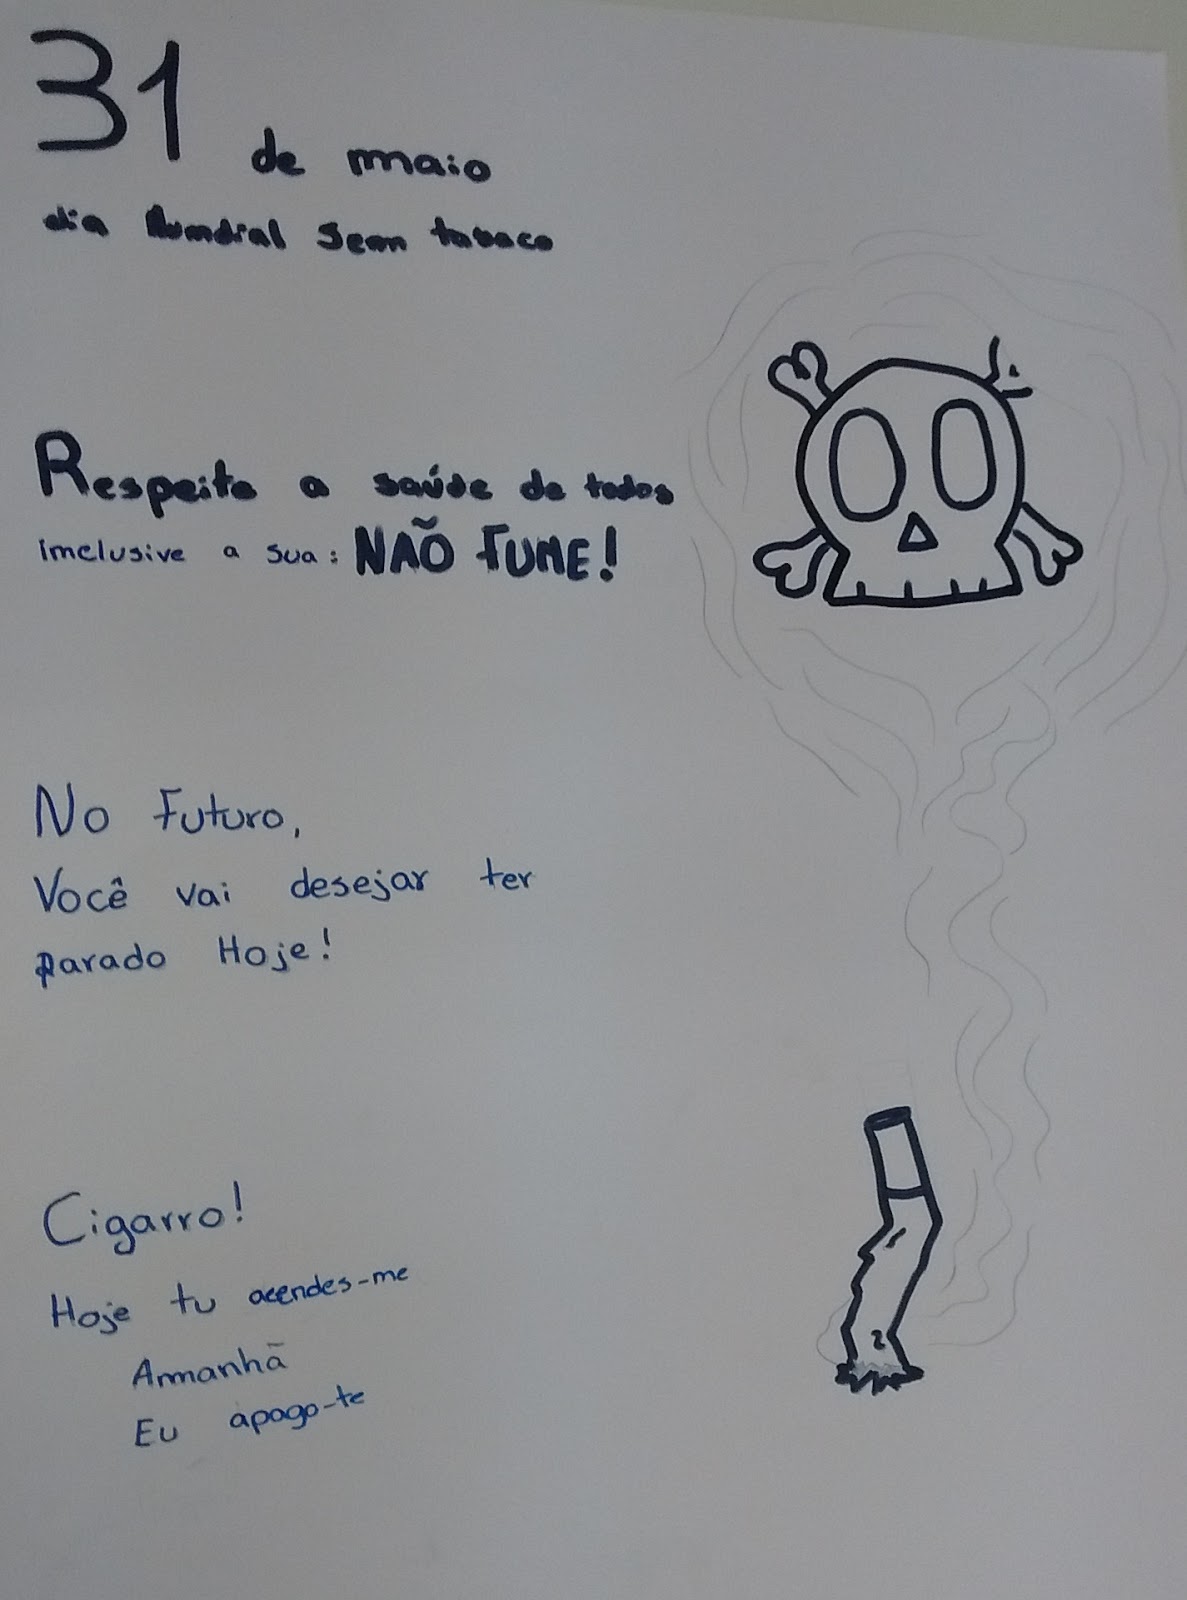 31 de maio
dia Mundial sem tabaco
Respeite a saúde de todos
inclusive a sua: NÃO FUME!
No Futuro,
Você vai desejar ter
parado Hoje!
Cigarro!
Hoje tu acendes-me
Amanhã
Eu apago-te